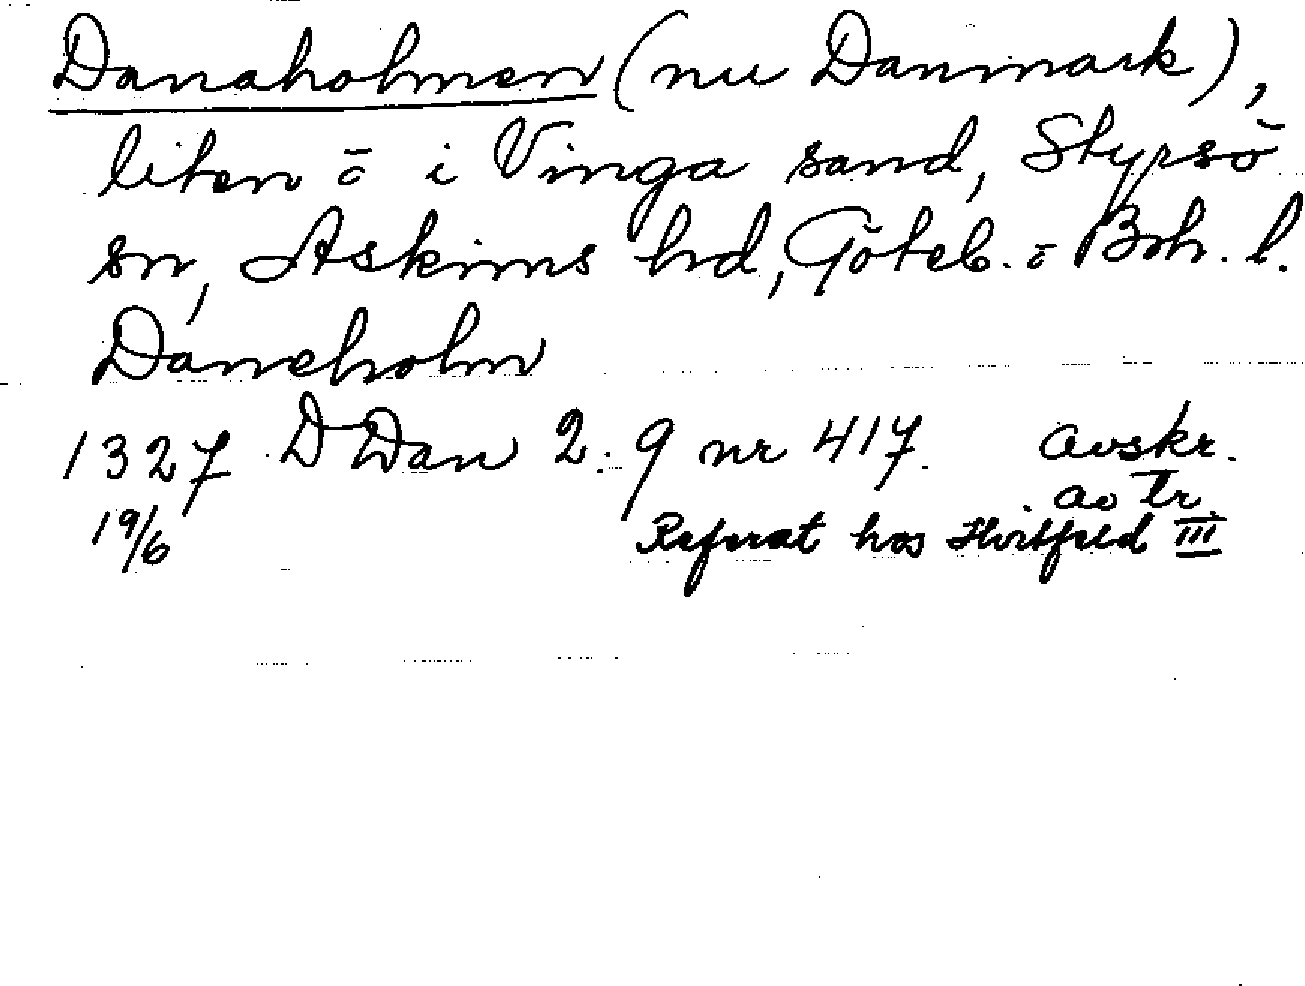 Danaholmen (nu Danmark),
liten ö i Vinga sand, Styrsö
sn, Askims hd, Göteb. o Boh. l.
Daneholm
1327 D Dan 2:9 nr 417. avskr.
19/6 av tr.
Referat hos Hvitfeld III